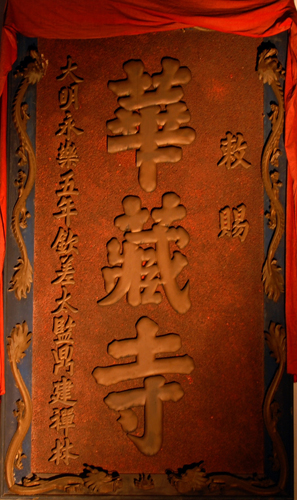 敕賜
華藏寺
大明永樂五年欽差太監鼎建禪林